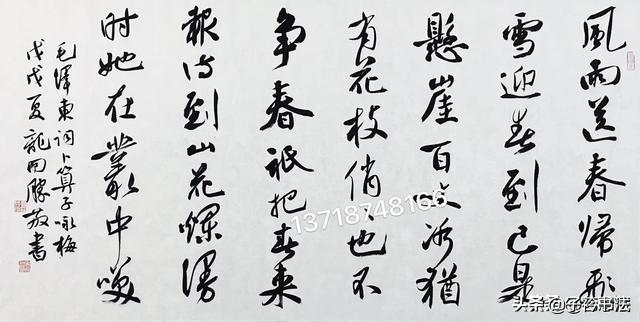 風雨送春歸飛
雪迎春到已是
懸崖百丈冰猶
有花枝俏俏也不
争春祇把春来
報待到山花爛漫
时她在叢中笑
毛泽東词卜算子咏梅
戊戌夏龍田勝敬書
13718748166